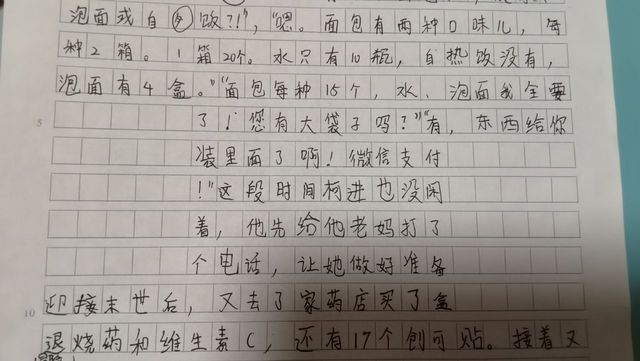 泡面或自热饭?!","嗯。面包有两种口味儿,每
种2箱。1箱20个。水只有10瓶,自热饭没有,
泡面有4盒。""面包每种15个,水、泡面我全要
5 了!您有大袋子吗?""有,东西给你
装里面了啊!微信支付
!"这段时间柯进也没闲
着,他先给他老妈打了
个电话,让她做好准备
10 迎接末世后,又去了家药店买了盒
退烧药和维生素C,还有17个创可贴。接着又